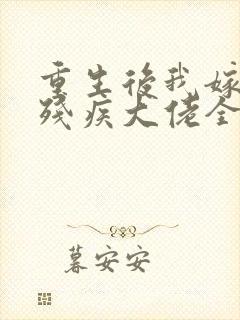 重生后我嫁
残疾大佬全
暮安安